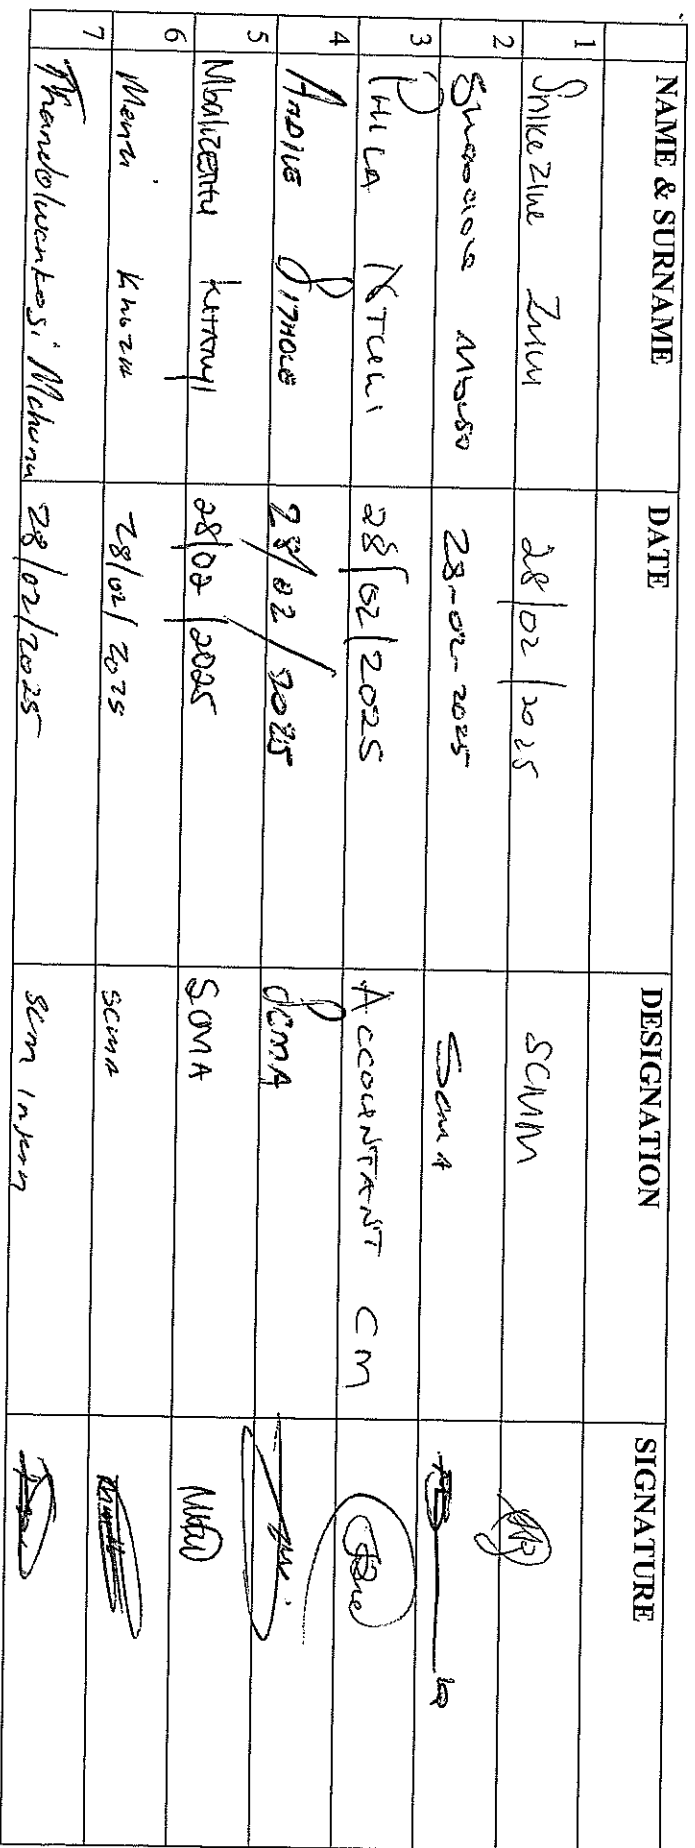 NAME & SURNAME DATE DESIGNATION SIGNATURE
1 Snikeziwe Zulu 28/02/2025 SCMM
2 28-02-2025 SCMA
3 PHILA NTULI 28/02/2025 ACCOUNTANT CM
4 ANDILE SITHOLE 28/02/2025 SCMA
5 28/02/2025 SCMA
6 Menzi Khoza 28/02/2025 SCMA
7 Thandolwenkosi Mchunu 28/02/2025 SCM Intern